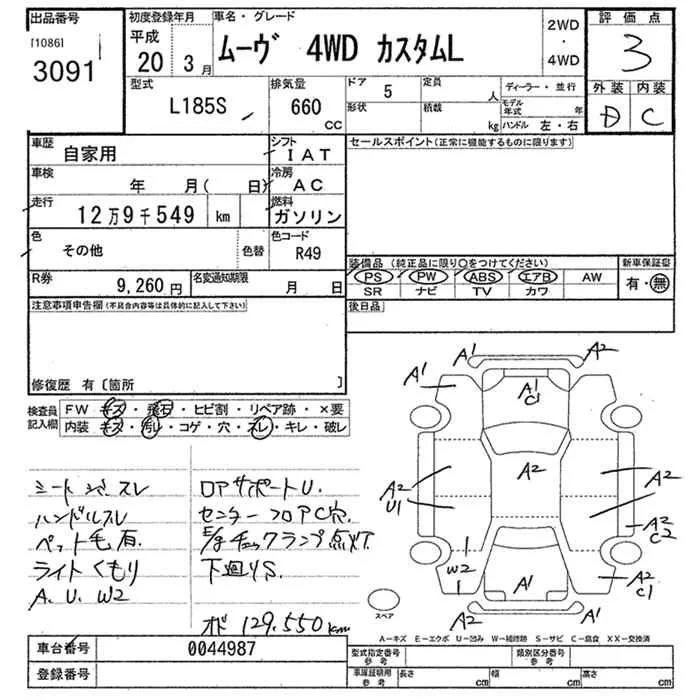 出品番号 初度登録年月 車名・グレード 2WD・4WD 評価点
[1086] 3091
平成 20 3月 ムーヴ 4WD カスタムL 3
型式 排気量 ドア 5 定員 人 ディーラー・並行 外装 内装
L185S 660 CC 形状 積載 kg モデル年式 年 D C
ハンドル 左・右
車歴 自家用 シフト IAT セールスポイント(正常に機能するものに限ります)
車検 年 月( 日) 冷房 AC
走行 12万9千549 km 燃料 ガソリン
色 その他 色替 色コード R49
装備品(純正品に限り○をつけてください) 新車保証書
R券 9,260円 名変通知期限 月 日
PS PW ABS エアB AW 有・無
SR ナビ TV カワ
注意事項申告欄(不具合内容等は具体的に記入して下さい) 後日品
修復歴 有〔箇所 〕
検査員記入欄 FW キズ・飛石・ヒビ割・リペア跡・×要
内装 キズ・汚レ・コゲ・穴・スレ・キレ・破レ
シートシミ スレ
ハンドルスレ
ペット毛有
ライトくもり
A. U. W2
ロアサポートU.
センターフロアC穴.
E/gチェックランプ点灯
下廻りS.
オド 129.550km
A1 A2
A1 A1 C1
A2 U1 A2 A2
A2 C2
W2
A1 A2 C1
A2 A2
スペア
A-キズ E-エクボ U-凹み W-補修跡 S-サビ C-腐食 XX-交換済
車台番号 0044987 型式指定番号 参考 類別区分番号 参考
登録番号 車庫証明用 参考 長さ cm 幅 cm 高さ cm